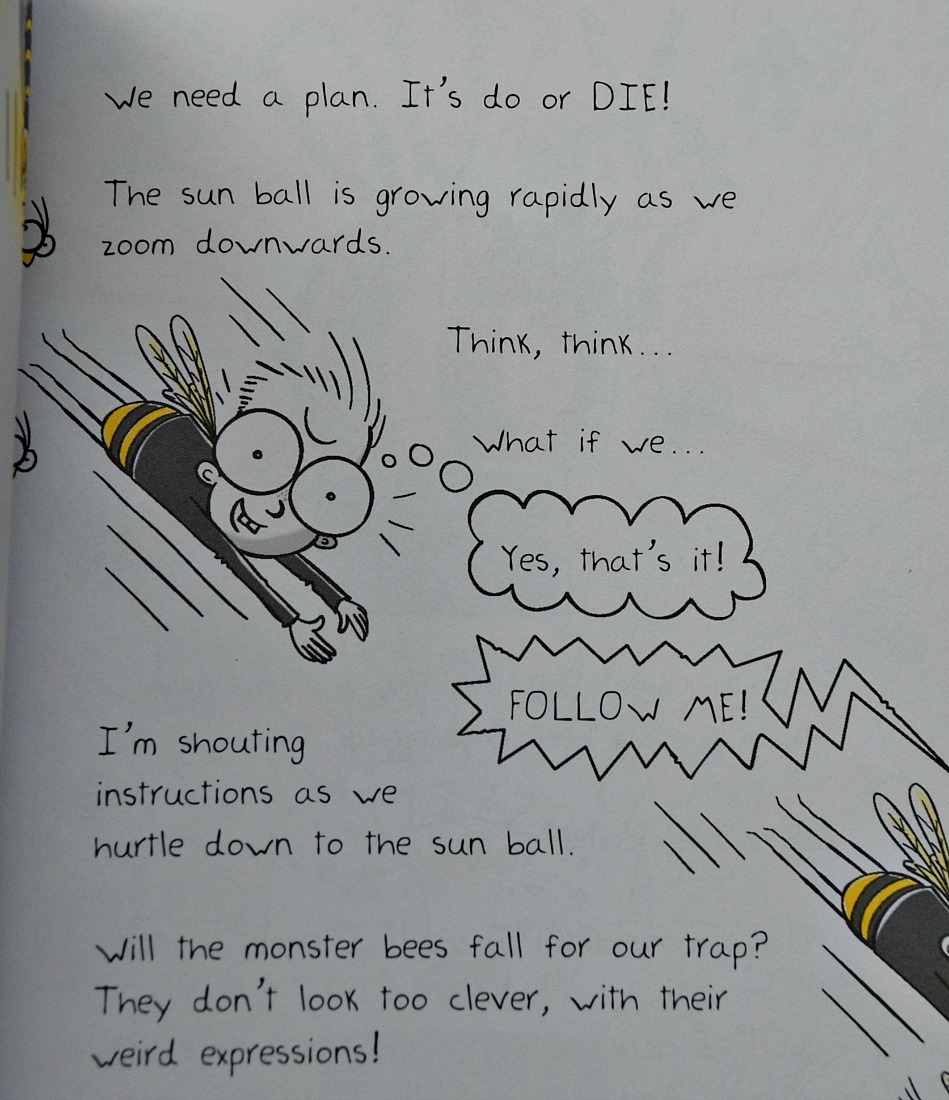 We need a plan. It's do or DIE!
The sun ball is growing rapidly as we
zoom downwards.
Think, think...
What if we...
Yes, that's it!
FOLLOW ME!
I'm shouting
instructions as we
hurtle down to the sun ball.
Will the monster bees fall for our trap?
They don't look too clever, with their
weird expressions!